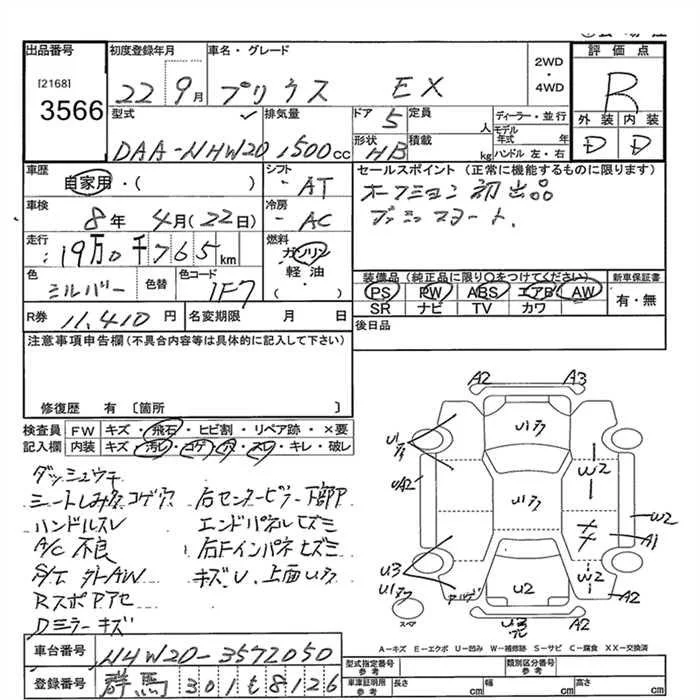 出品番号
[2168]
3566
初度登録年月
22 9月
車名・グレード
プリウス EX
2WD
・
4WD
評価点
R
外装 内装
D D
型式
DAA-NHW20
排気量
1500cc
ドア 5
定員 人
形状 HB
積載 kg
ディーラー・並行
モデル年式 年
ハンドル 左・右
車歴
自家用・( )
シフト
- AT
車検
8年 4月(22日)
冷房
- AC
走行
19万0千765km
燃料
ガソリン
軽油
( )
色
シルバー
色替
色コード
1F7
R券 11,410円
名変期限 月 日
セールスポイント (正常に機能するものに限ります)
オークション初出品
プッシュスタート.
装備品(純正品に限り○をつけてください)
PS PW ABS エアB AW
SR ナビ TV カワ
新車保証書
有・無
後日品
注意事項申告欄(不具合内容等は具体的に記入して下さい)
修復歴 有 〔箇所 〕
検査員記入欄
FW キズ・飛石・ヒビ割・リペア跡・×要
内装 キズ・汚レ・コゲ・穴・スレ・キレ・破レ
ダッシュウキ
シートしみ多コゲ穴
ハンドルスレ
A/C 不良
S/T 外AW
RスポPアセ
Dミラーキズ
右センターピラー下部P
エンドパネルヒズミ
右Fインパネヒズミ
キズ、U、上面Uアタ
A2 A3
U1
UA2
W2
W2
A1
U3
U2
W2
A2
A2
スペア
A-キズ E-エクボ U-凹み W-補修跡 S-サビ C-腐食 XX-交換済
車台番号
NHW20-3572050
登録番号
群馬 301 も 8126
型式指定番号
参考
類別区分番号
参考
車庫証明用
参考
長さ cm
幅 cm
高さ cm